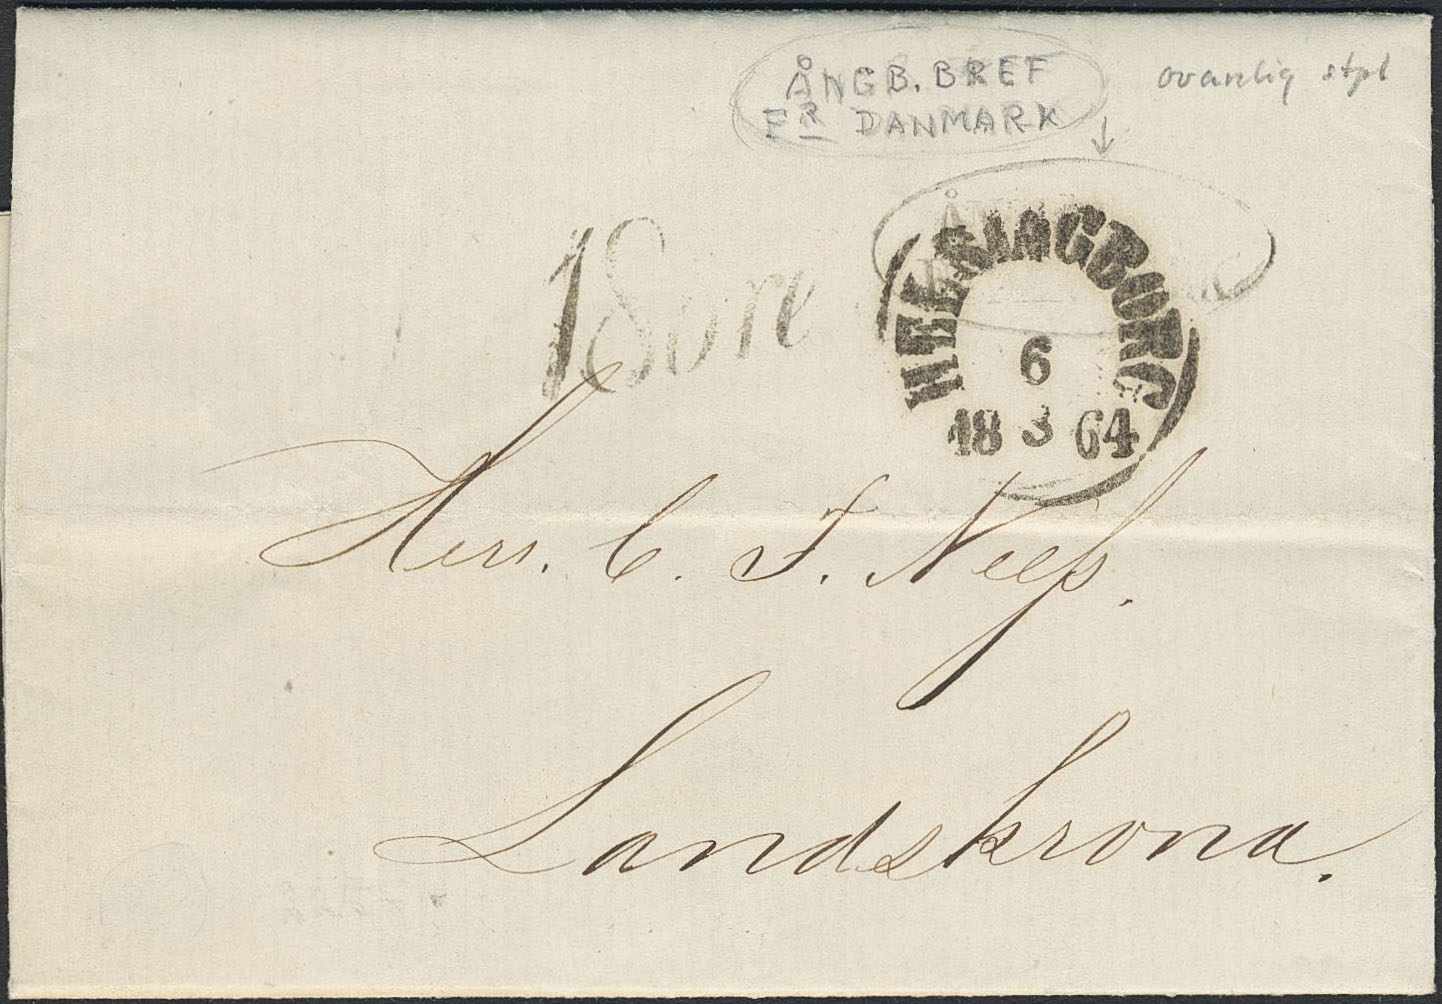 ÅNGB. BREF
FR DANMARK
ovanlig stpl
18 öre
HELSINGBORG
6
18 3 64
Herr. C. F. Neess.
Landskrona.